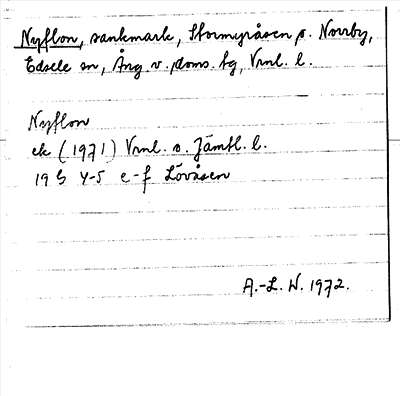 Nyflon, sankmark, Stormyråsen o. Norrby,
Edsele sn, Ång. v. doms. tg, Vrnl. l.
Nyflon
ek (1971) Vrnl. o. Jämtl. l.
19 G 4-5 e-f Lövåsen
A.-L. W. 1972.